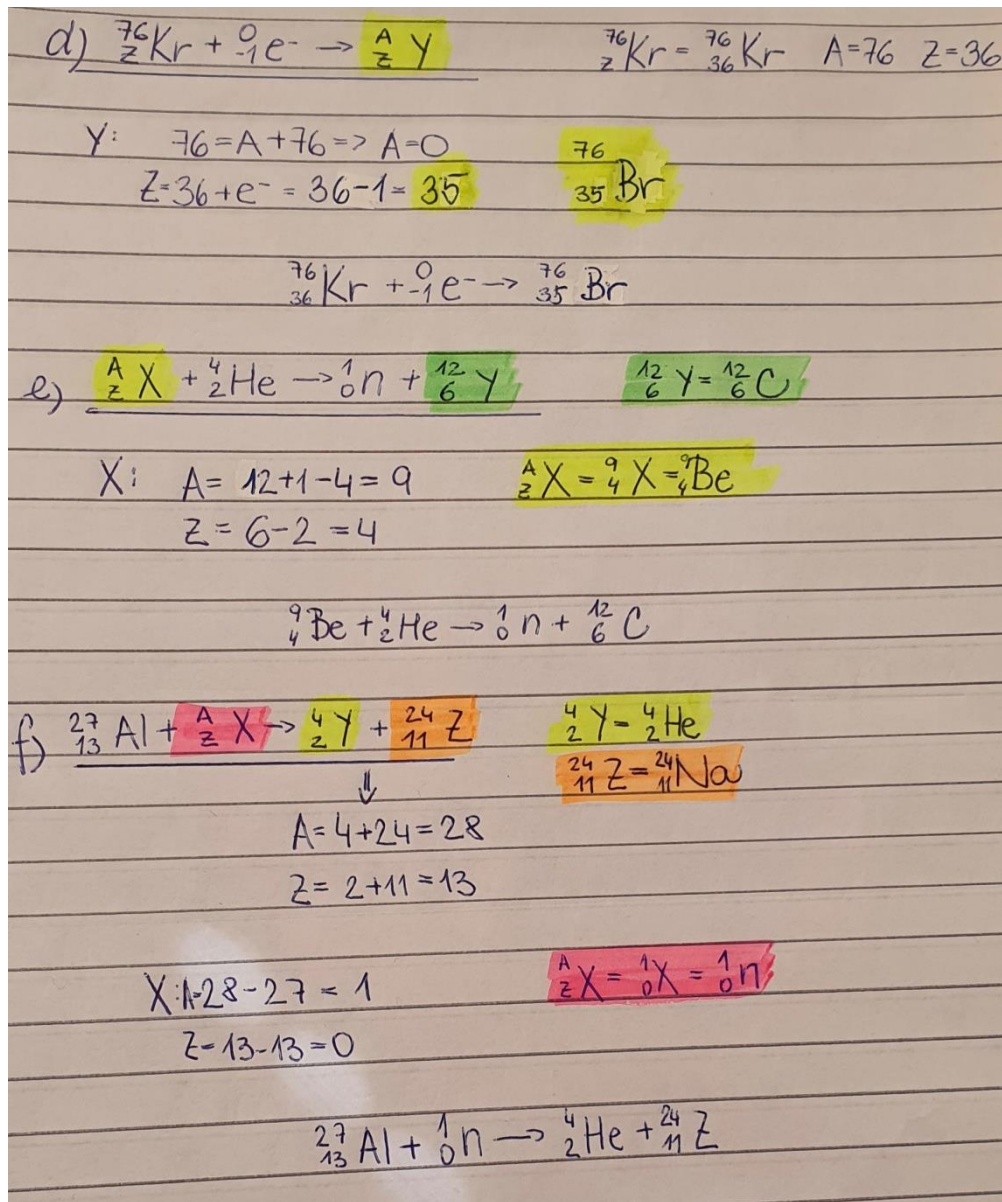 d) ⁷⁶_Z Kr + ⁰₋₁e⁻ → ᴬ_Z Y ⁷⁶_Z Kr = ⁷⁶₃₆Kr A=76 Z=36
Y: 76=A+76=> A=0 ⁷⁶₃₅Br
Z=36+e⁻ = 36-1=35
⁷⁶₃₆Kr + ⁰₋₁e⁻ → ⁷⁶₃₅Br
e) ᴬ_Z X + ⁴₂He → ¹₀n + ¹²₆Y ¹²₆Y = ¹²₆C
X: A= 12+1-4= 9 ᴬ_Z X = ⁹₄X = ⁹₄Be
Z = 6-2 = 4
⁹₄Be + ⁴₂He → ¹₀n + ¹²₆C
f) ²⁷₁₃Al + ᴬ_Z X → ⁴₂Y + ²⁴₁₁Z ⁴₂Y = ⁴₂He
²⁴₁₁Z = ²⁴₁₁Na
⇓
A= 4+24=28
Z= 2+11=13
X: A=28-27 = 1 ᴬ_Z X = ¹₀X = ¹₀n
Z=13-13=0
²⁷₁₃Al + ¹₀n → ⁴₂He + ²⁴₁₁Z